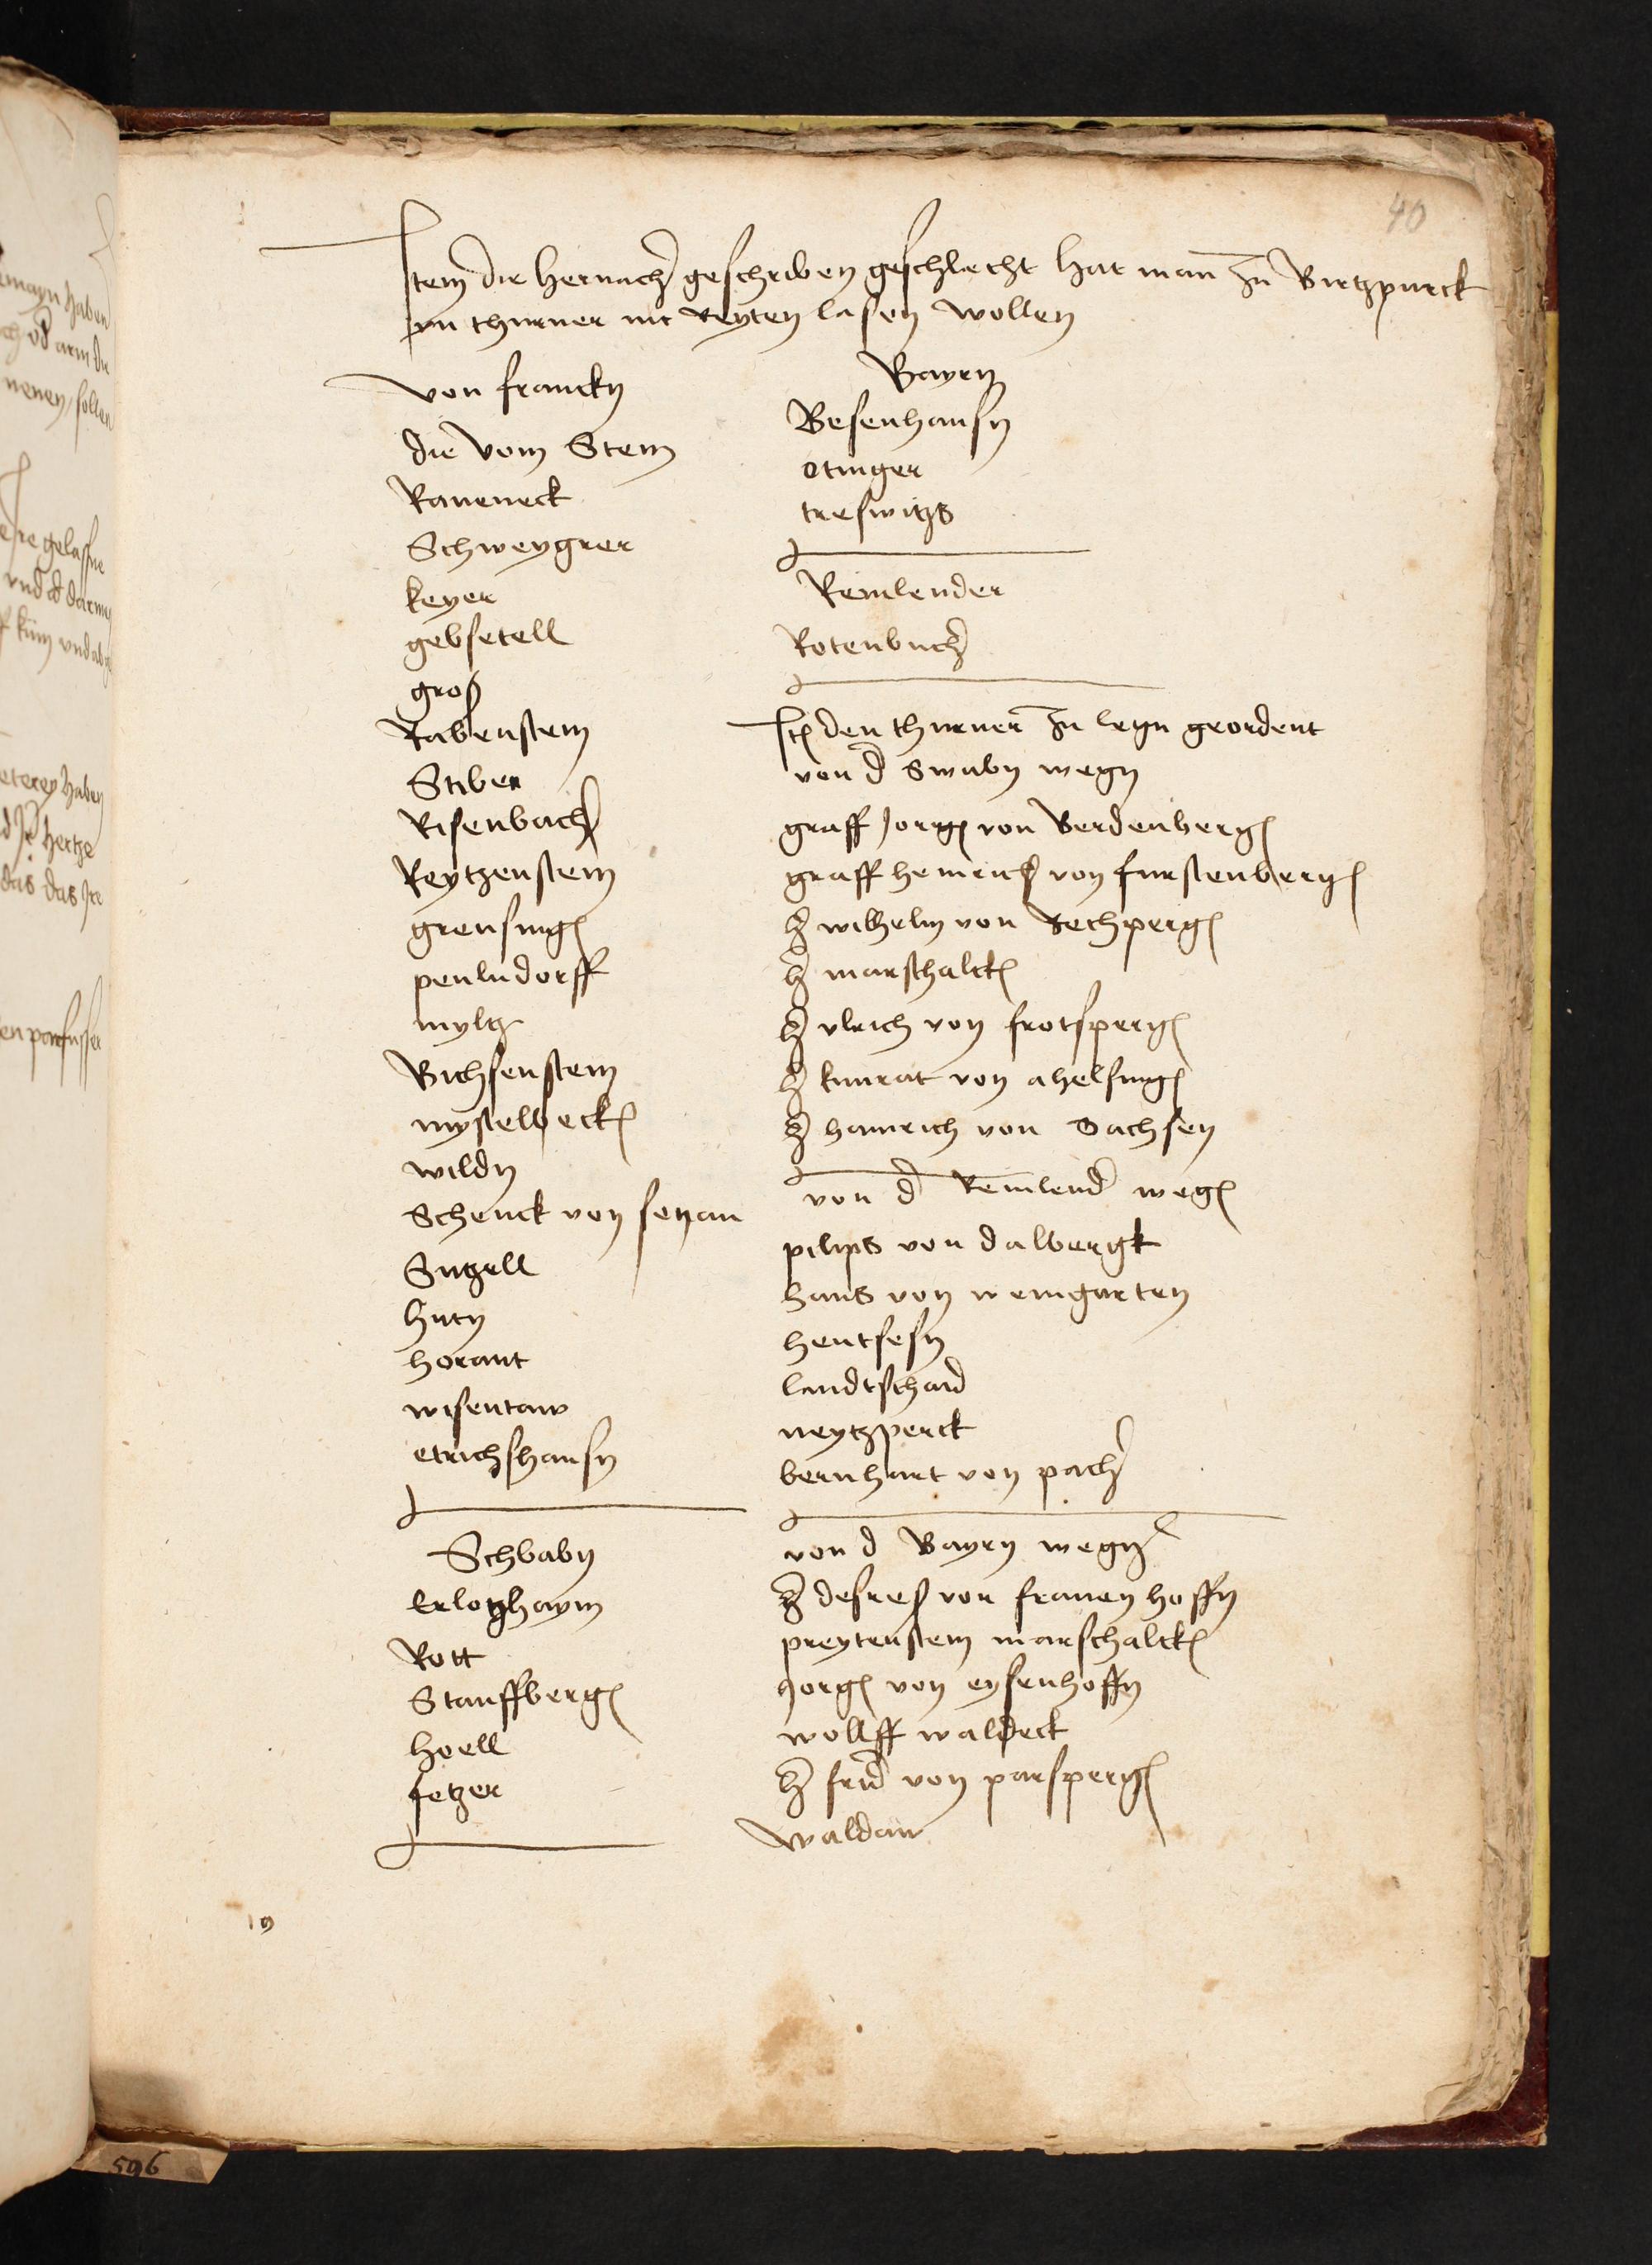 40
Item die hernach geschriben geschlecht hat man zu Birtzpurck
ym thurner nit Reyten lasen wollen
von franckn
die vom Stein
Raueneck
Schweygrer
keyer
gebsetell
groß
Rabenstein
Stiber
Risenbach
Reytzenstein
greusing
penlndorff
myltz
Bichsenstein
mystelbeck
wildn
Schenck von seyau
Sutzell
hutn
horant
wisentaw
etrichshausn
Schbabn
Erlotzhaym
Rott
Stauffberg
hoell
fetzer
Bayrn
Besenhausn
otinger
treswitzs
Reinlender
Rotenbuch
Ite den thurner zu letzn geordent
von d swabn wegn
graff Jorg von Berdenberg
graff heinrich von furstenberg
h wilhelm von Rechperg
h marschalck
h vlrich von frotsperg
h kunrat von ahelfing
h hainrich von Sachsen
von d Reinlend weg
pilips von dalbergk
hans von weingarten
hentsesn
landtschad
neytzperck
bernhart von pach
von d Bayrn wegn
h desreß von frauen hoffn
preytenstein marschalck
Jorg von eysenhoffn
wollff waldeck
h frid von parsperg
waldaw
19
596